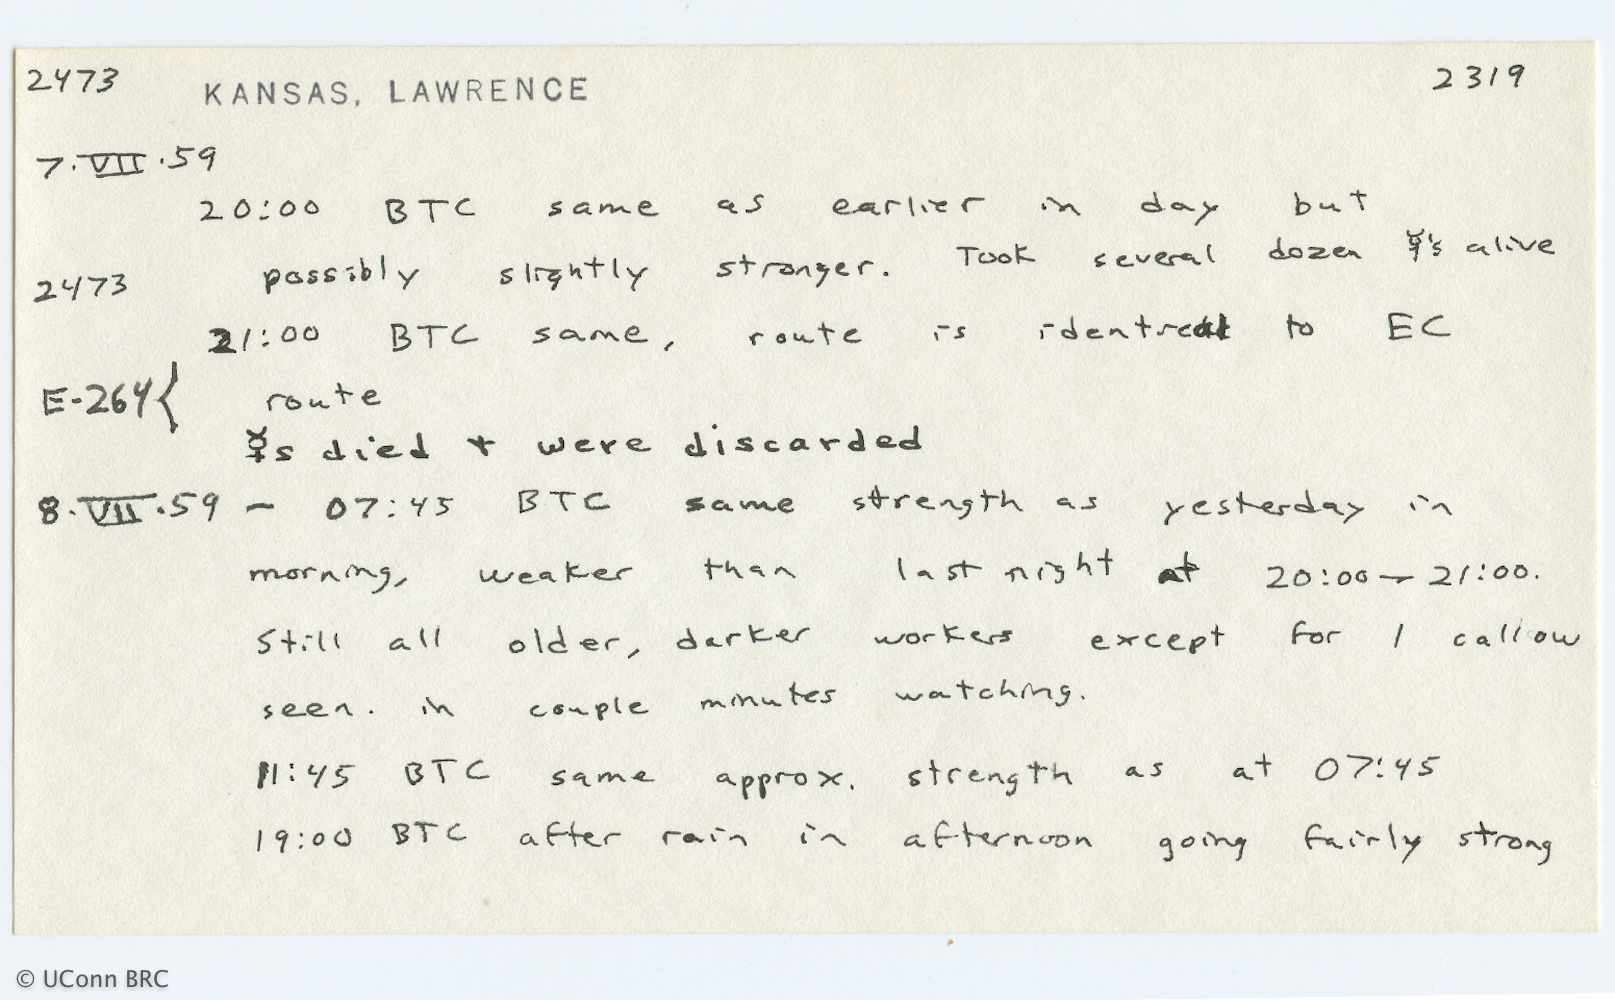 2473 KANSAS, LAWRENCE 2319
7.VII.59
20:00 BTC same as earlier in day but
possibly slightly stronger. Took several dozen ☿'s alive
2473
21:00 BTC same, route is identical to EC
E-264{ route
☿s died + were discarded
8.VII.59 – 07:45 BTC same strength as yesterday in
morning, weaker than last night at 20:00–21:00.
Still all older, darker workers except for 1 callow
seen. in couple minutes watching.
11:45 BTC same approx. strength as at 07:45
19:00 BTC after rain in afternoon going fairly strong
© UConn BRC